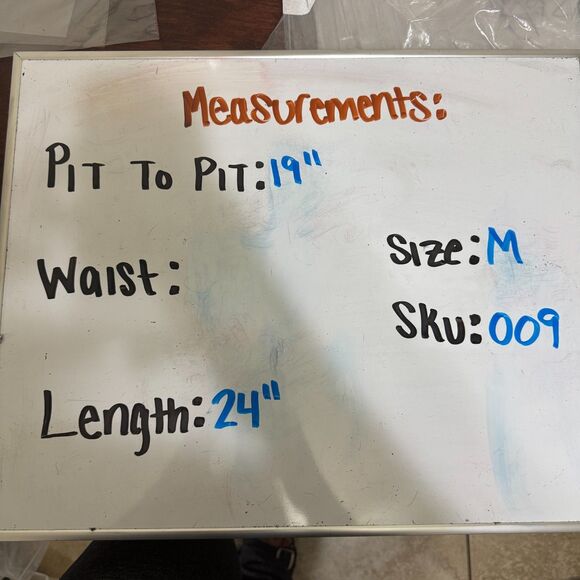 Measurements:
Pit To Pit: 19"
Waist:
Size: M
Sku: 009
Length: 24"